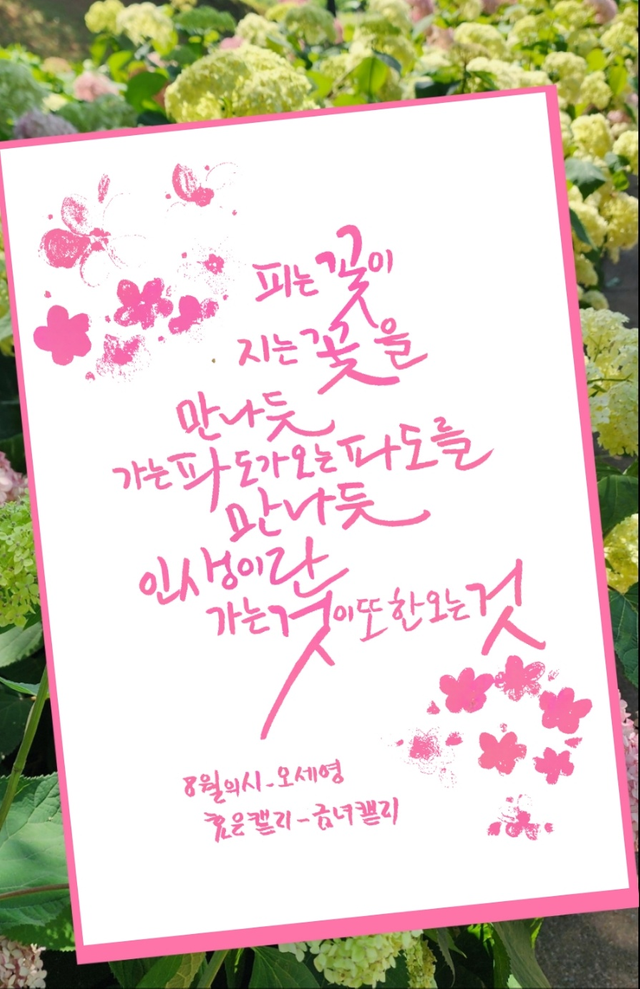 피는 꽃이
지는 꽃을
만나듯
가는 파도가 오는 파도를
만나듯
인생이란
가는것이 또한 오는 것
8월의시 - 오세영
캘리 - 금녀캘리